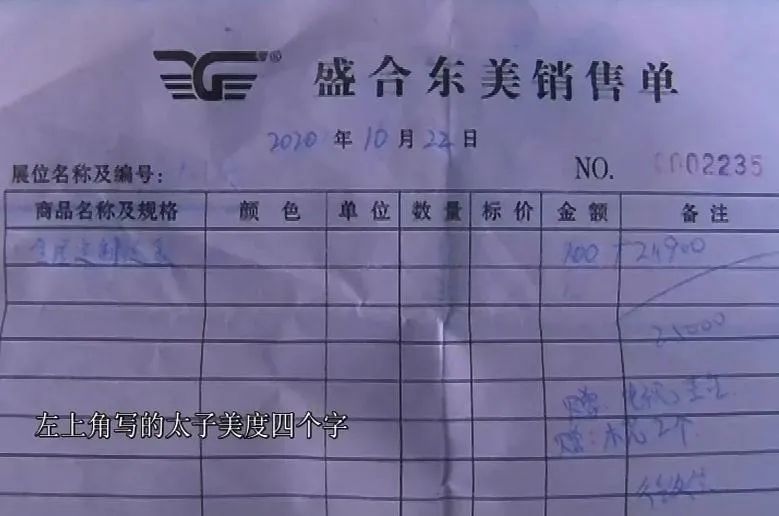 盛合东美销售单
2020年10月22日
展位名称及编号:
NO. 0002235
商品名称及规格 颜色 单位 数量 标价 金额 备注
100 + 24900
25000
左上角写的太子美度四个字
赠:木花2个